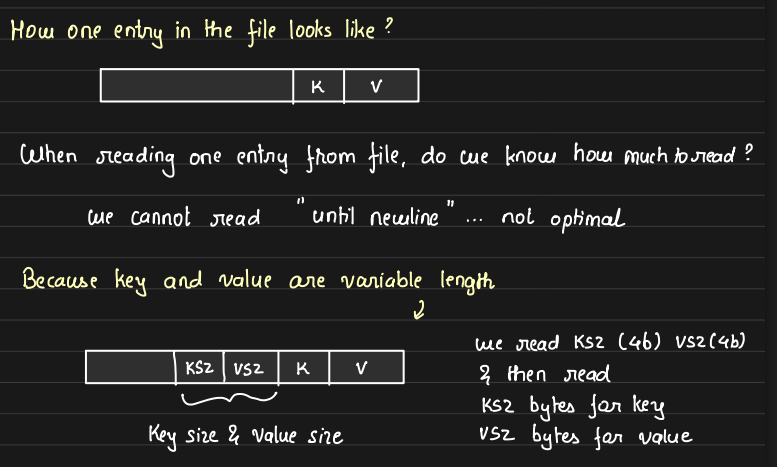 How one entry in the file looks like?
K V
When reading one entry from file, do we know how much to read?
we cannot read "until newline"... not optimal
Because key and value are variable length
KSZ VSZ K V
Key size & value size
we read KSZ (4b) VSZ (4b)
& then read
KSZ bytes for key
VSZ bytes for value